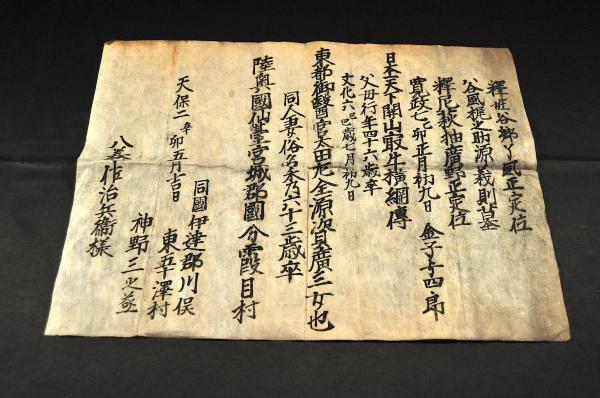 釋 谷 風正定位
谷風梶之助源義則墓
釋尼萩袖廣野正定位
寛政七乙卯正月初九日 金子与四郎
日本天下開山 横綱傳
父母行年四十六歳卒
文化六己巳歳七月初九日
東都御醫官太田元全源資廣三女也
同人妻俗名 乃六十三歳卒
陸奥國仙臺宮城郡國分霞目村
天保二辛卯五月 日
同國伊達郡川俣
東五十澤村
神野三之丞
作治兵衛様